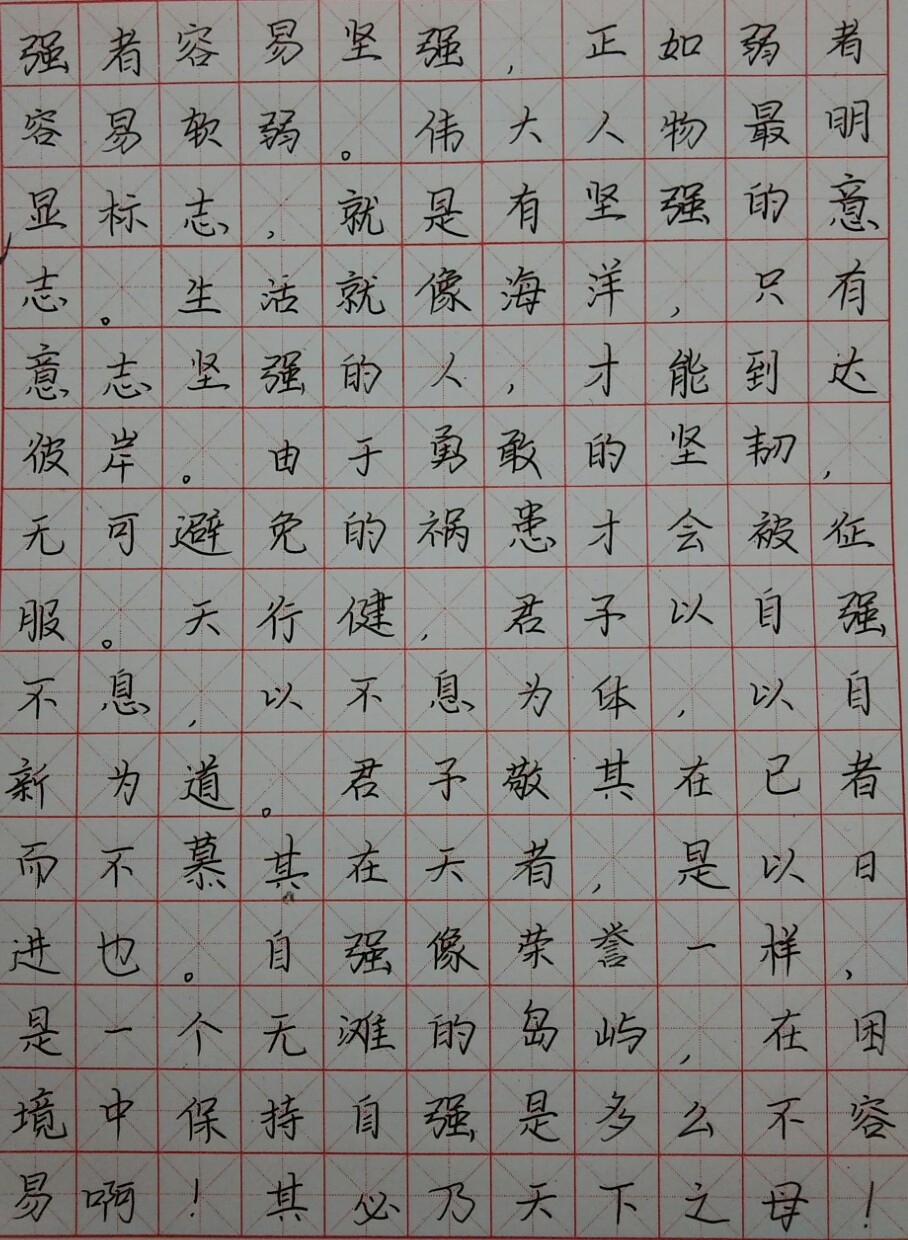 强者容易坚强，正如弱者
容易软弱。伟大人物最明
显标志，就是有坚强的意
志。生活就像海洋，只有
意志坚强的人，才能到达
彼岸。由于勇敢的坚韧，
无可避免的祸患才会被征
服。天行健，君子以自强
不息，以不息为体，以自
新为道。君子敬其在已者
而不慕其在天者，是以日
进也。自强像荣誉一样，
是一个无滩的岛屿，在困
境中保持自强是多么不容
易啊！其必乃天下之母！